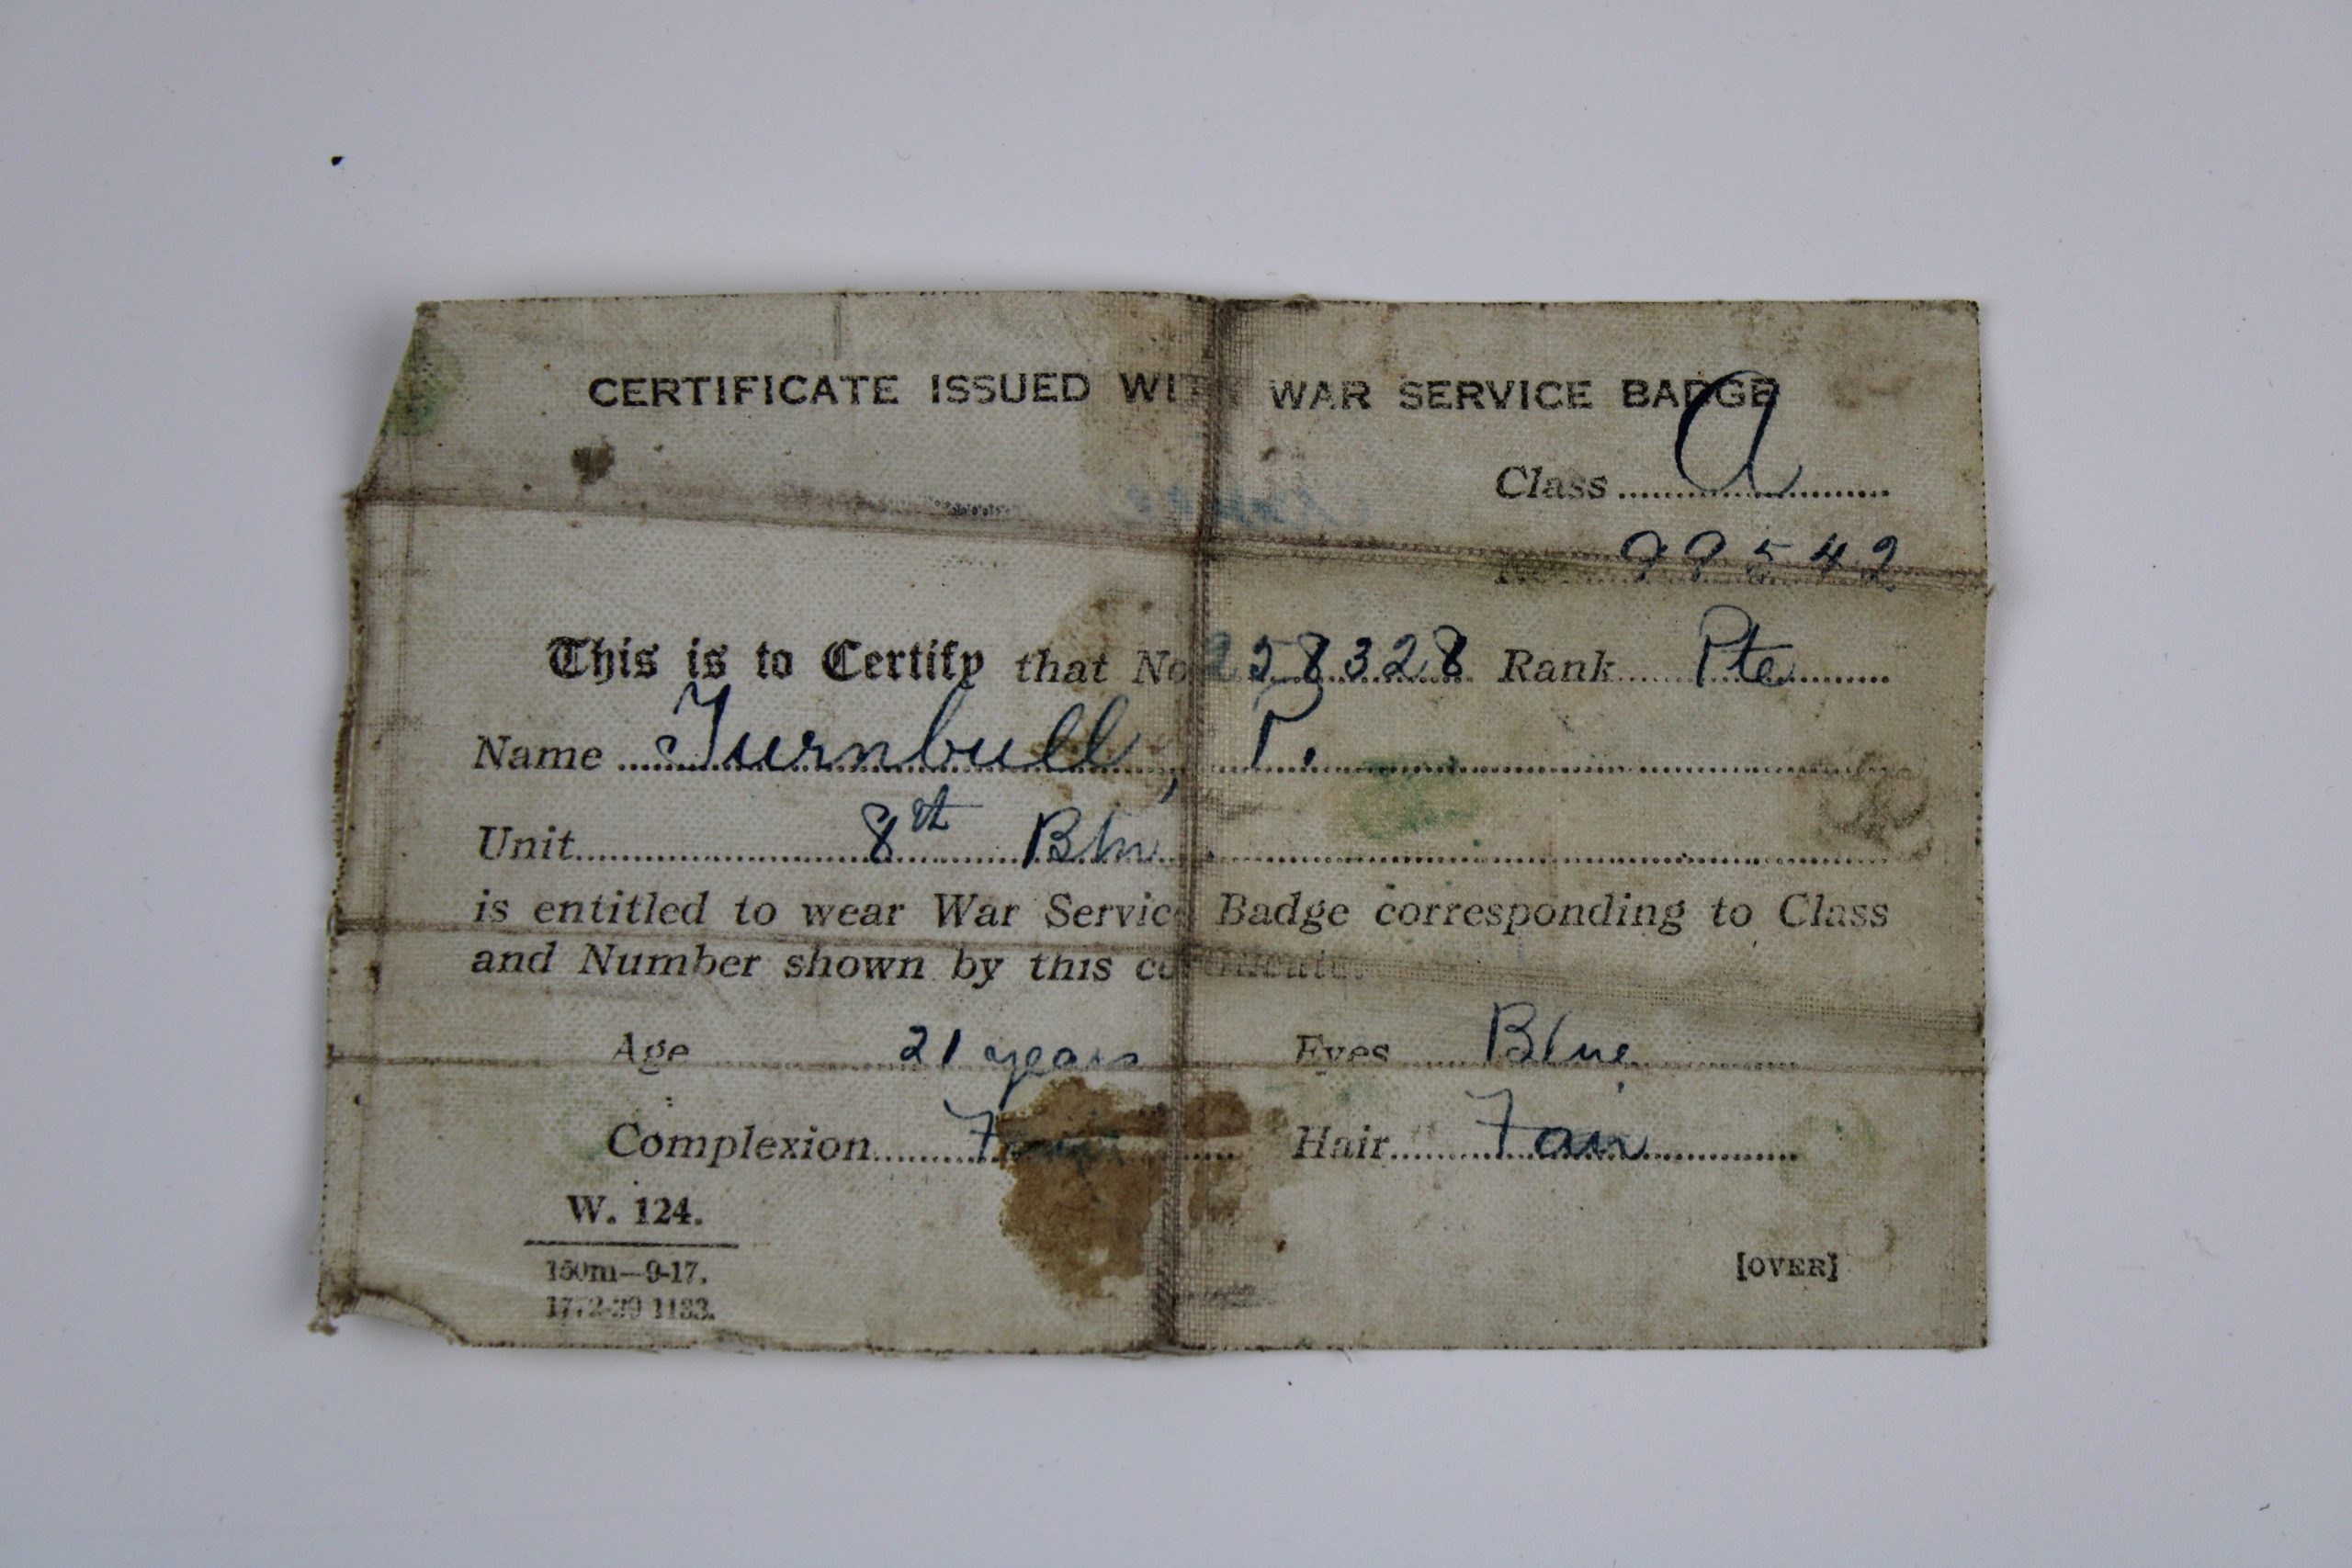 CERTIFICATE ISSUED WITH WAR SERVICE BADGE
Class A
No. 99542
This is to Certify that No 258328 Rank Pte
Name Turnbull, P.
Unit 8th Btn
is entitled to wear War Service Badge corresponding to Class
and Number shown by this certificate.
Age 21 years Eyes Blue
Complexion Fair Hair Fair
W. 124.
150m—9-17.
[OVER]